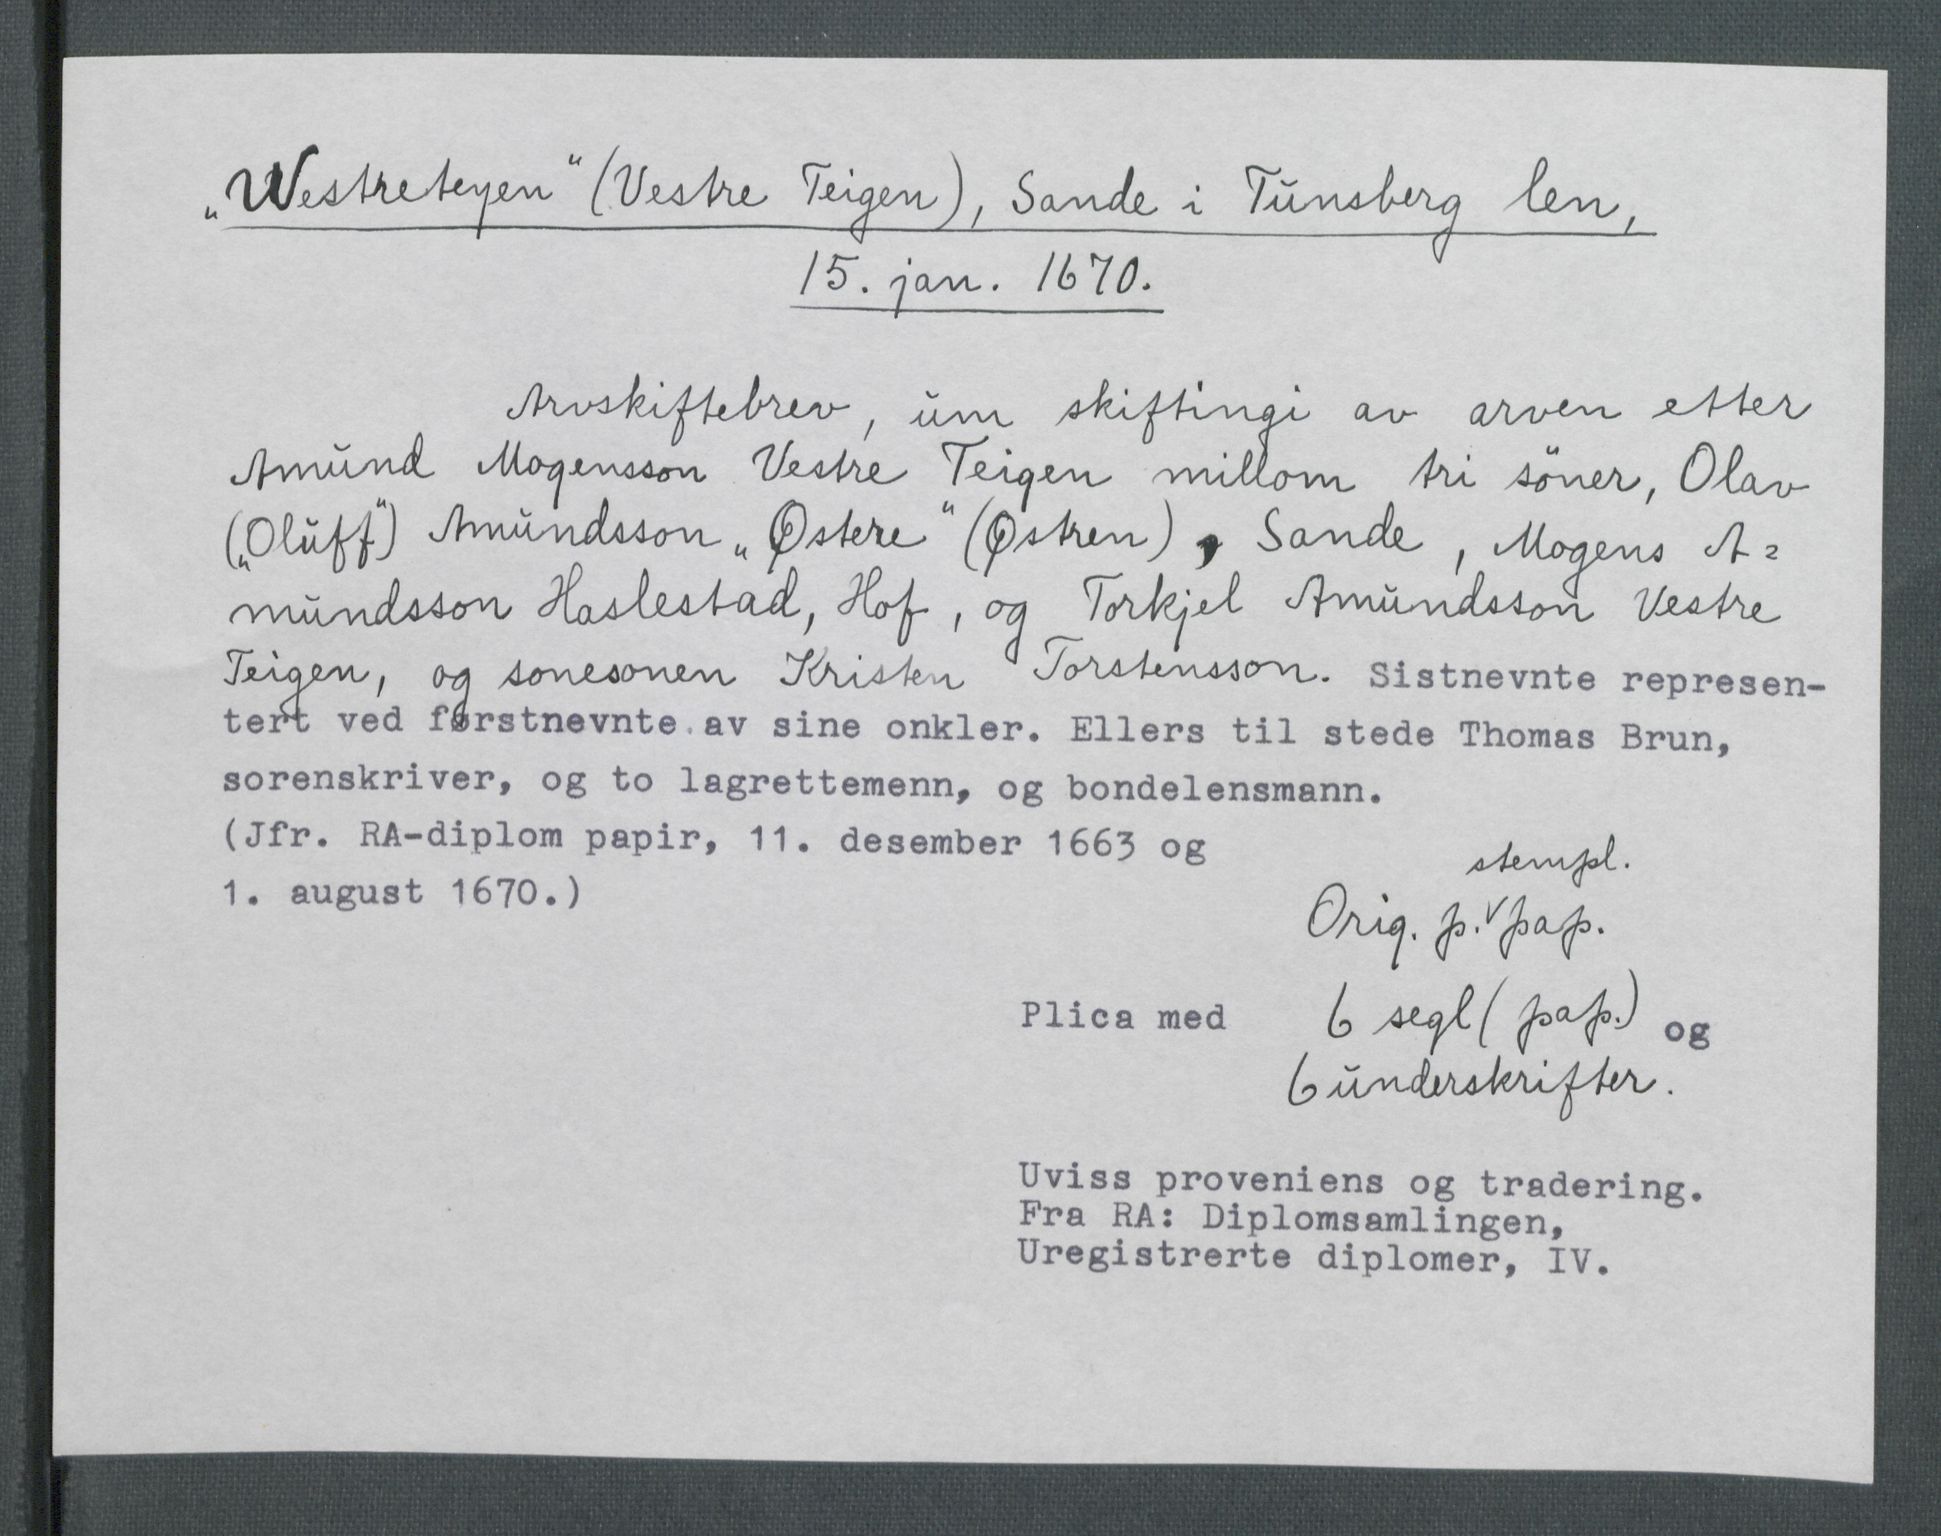 „Westreteyen“ (Vestre Teigen), Sande i Tunsberg len,
15. jan. 1670.
Arvskiftebrev, um skiftingi av arven etter
Amund Mogensson Vestre Teigen millom tri söner, Olav
(„Oluff“) Amundsson „Østere“ (Østren), Sande, Mogens A=
mundsson Haslestad, Hof, og Torkjel Amundsson Vestre
Teigen, og sonesonen Kristen Torstensson. Sistnevnte represen-
tert ved førstnevnte av sine onkler. Ellers til stede Thomas Brun,
sorenskriver, og to lagrettemenn, og bondelensmann.
(Jfr. RA-diplom papir, 11. desember 1663 og
1. august 1670.)
stempl.
Orig. p. v pap.
Plica med 6 segl (pap.) og
6 underskrifter.
Uviss proveniens og tradering.
Fra RA: Diplomsamlingen,
Uregistrerte diplomer, IV.